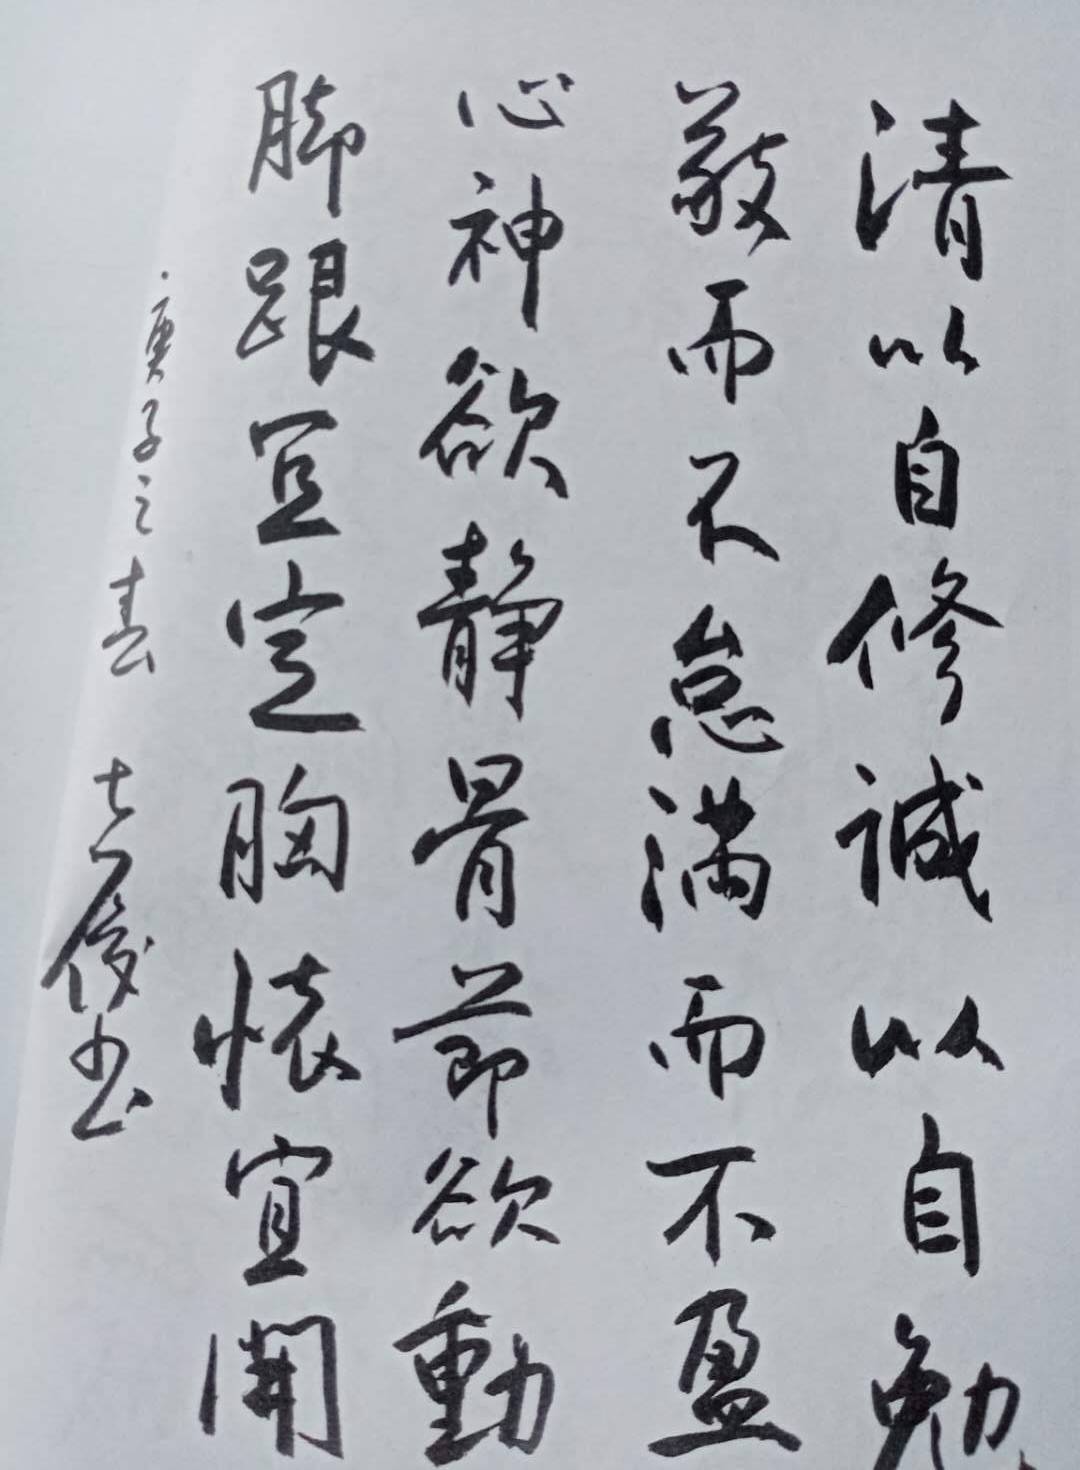 清以自修誠以自勉
敬而不怠滿而不盈
心神欲靜骨節欲動
脚跟宜定胸懷宜開
庚子之春 志俊书